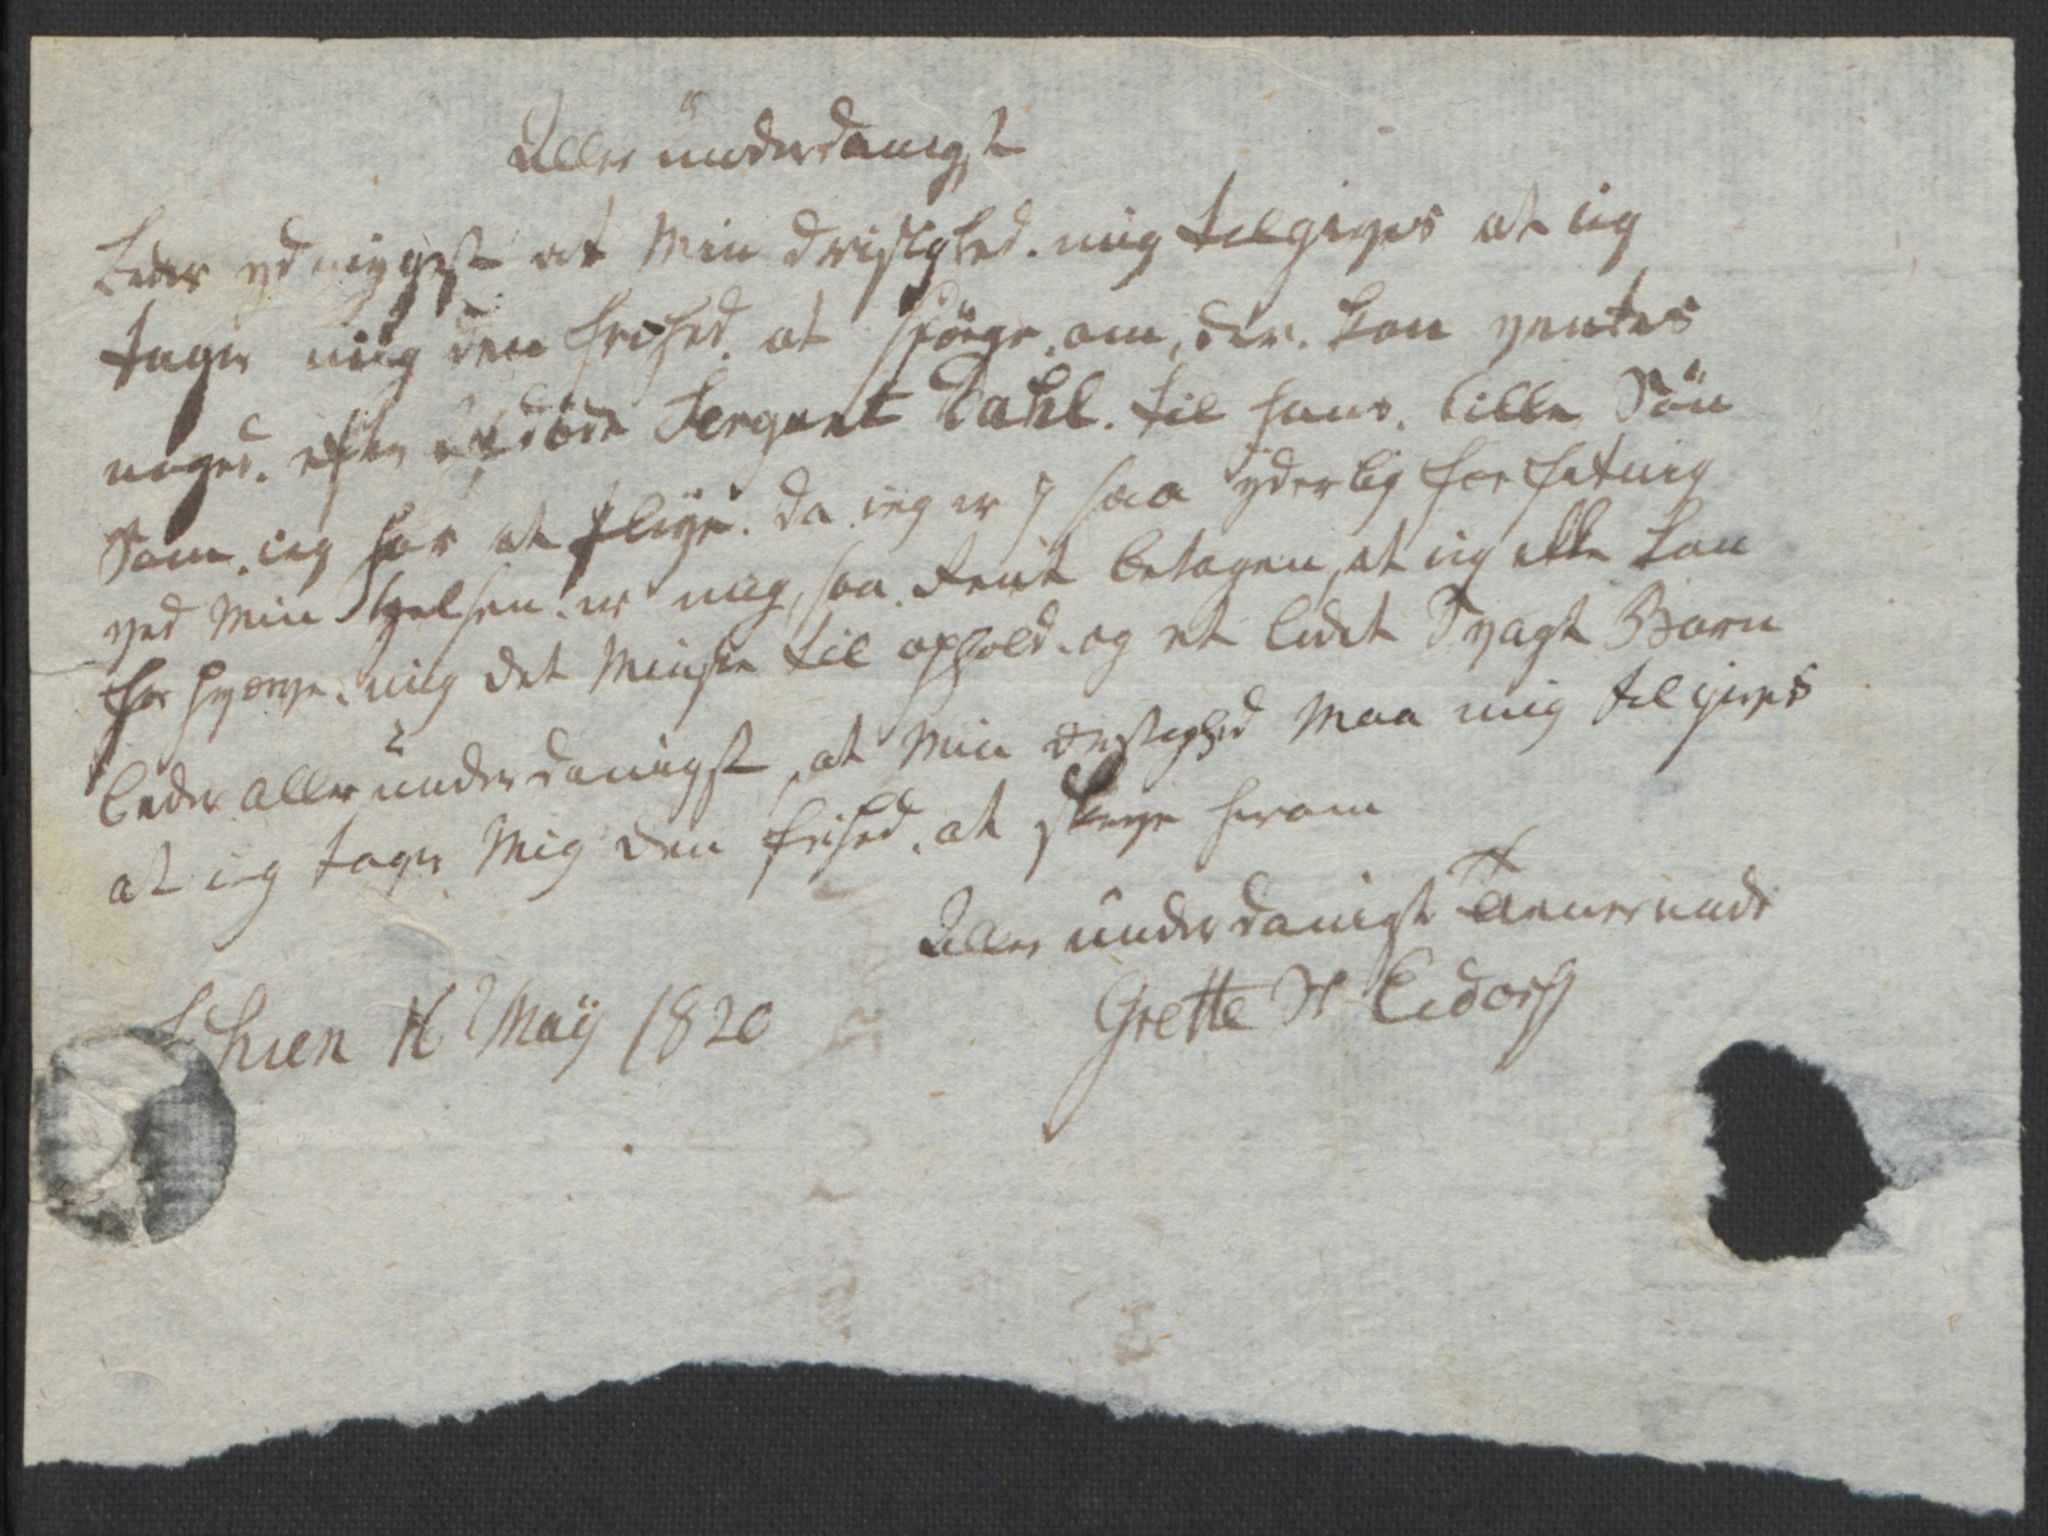 Aller underdanigst
beder ydmygst at Min dristighed. mig tilgives at ieg
tager mig den frihed. at spörge. om, der. kan ventes
noged. efter afdöde Sergent Dahl. til hans. lille Sön
Som. ieg har at pleye. da ieg er i saa yderlig forfatnig
ved Min helsen er mig, saa. Rent betagen, at ieg ikke kan
for hverve. mig det Minste til ophold. og et lidet Svagt Barn
beder aller underdanigst, at Min Drstighed Maa mig tilgives
at ieg tager Mig den frihed. at skrive herom
Aller underdanigst tienerinde
Grette H Eidorff
Schien May 1820